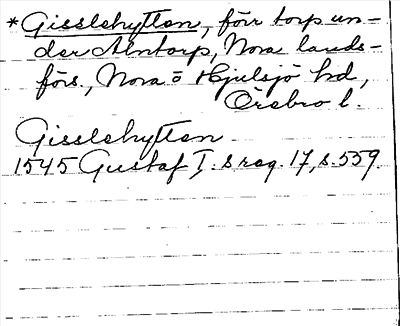 *Gisslehyttan, förr torp un-
der Alntorp, Nora lands-
förs., Nora o Hjulsjö hd,
Örebro l.
Gisslehyttan
1545 Gustaf I:s reg. 17, s. 559.